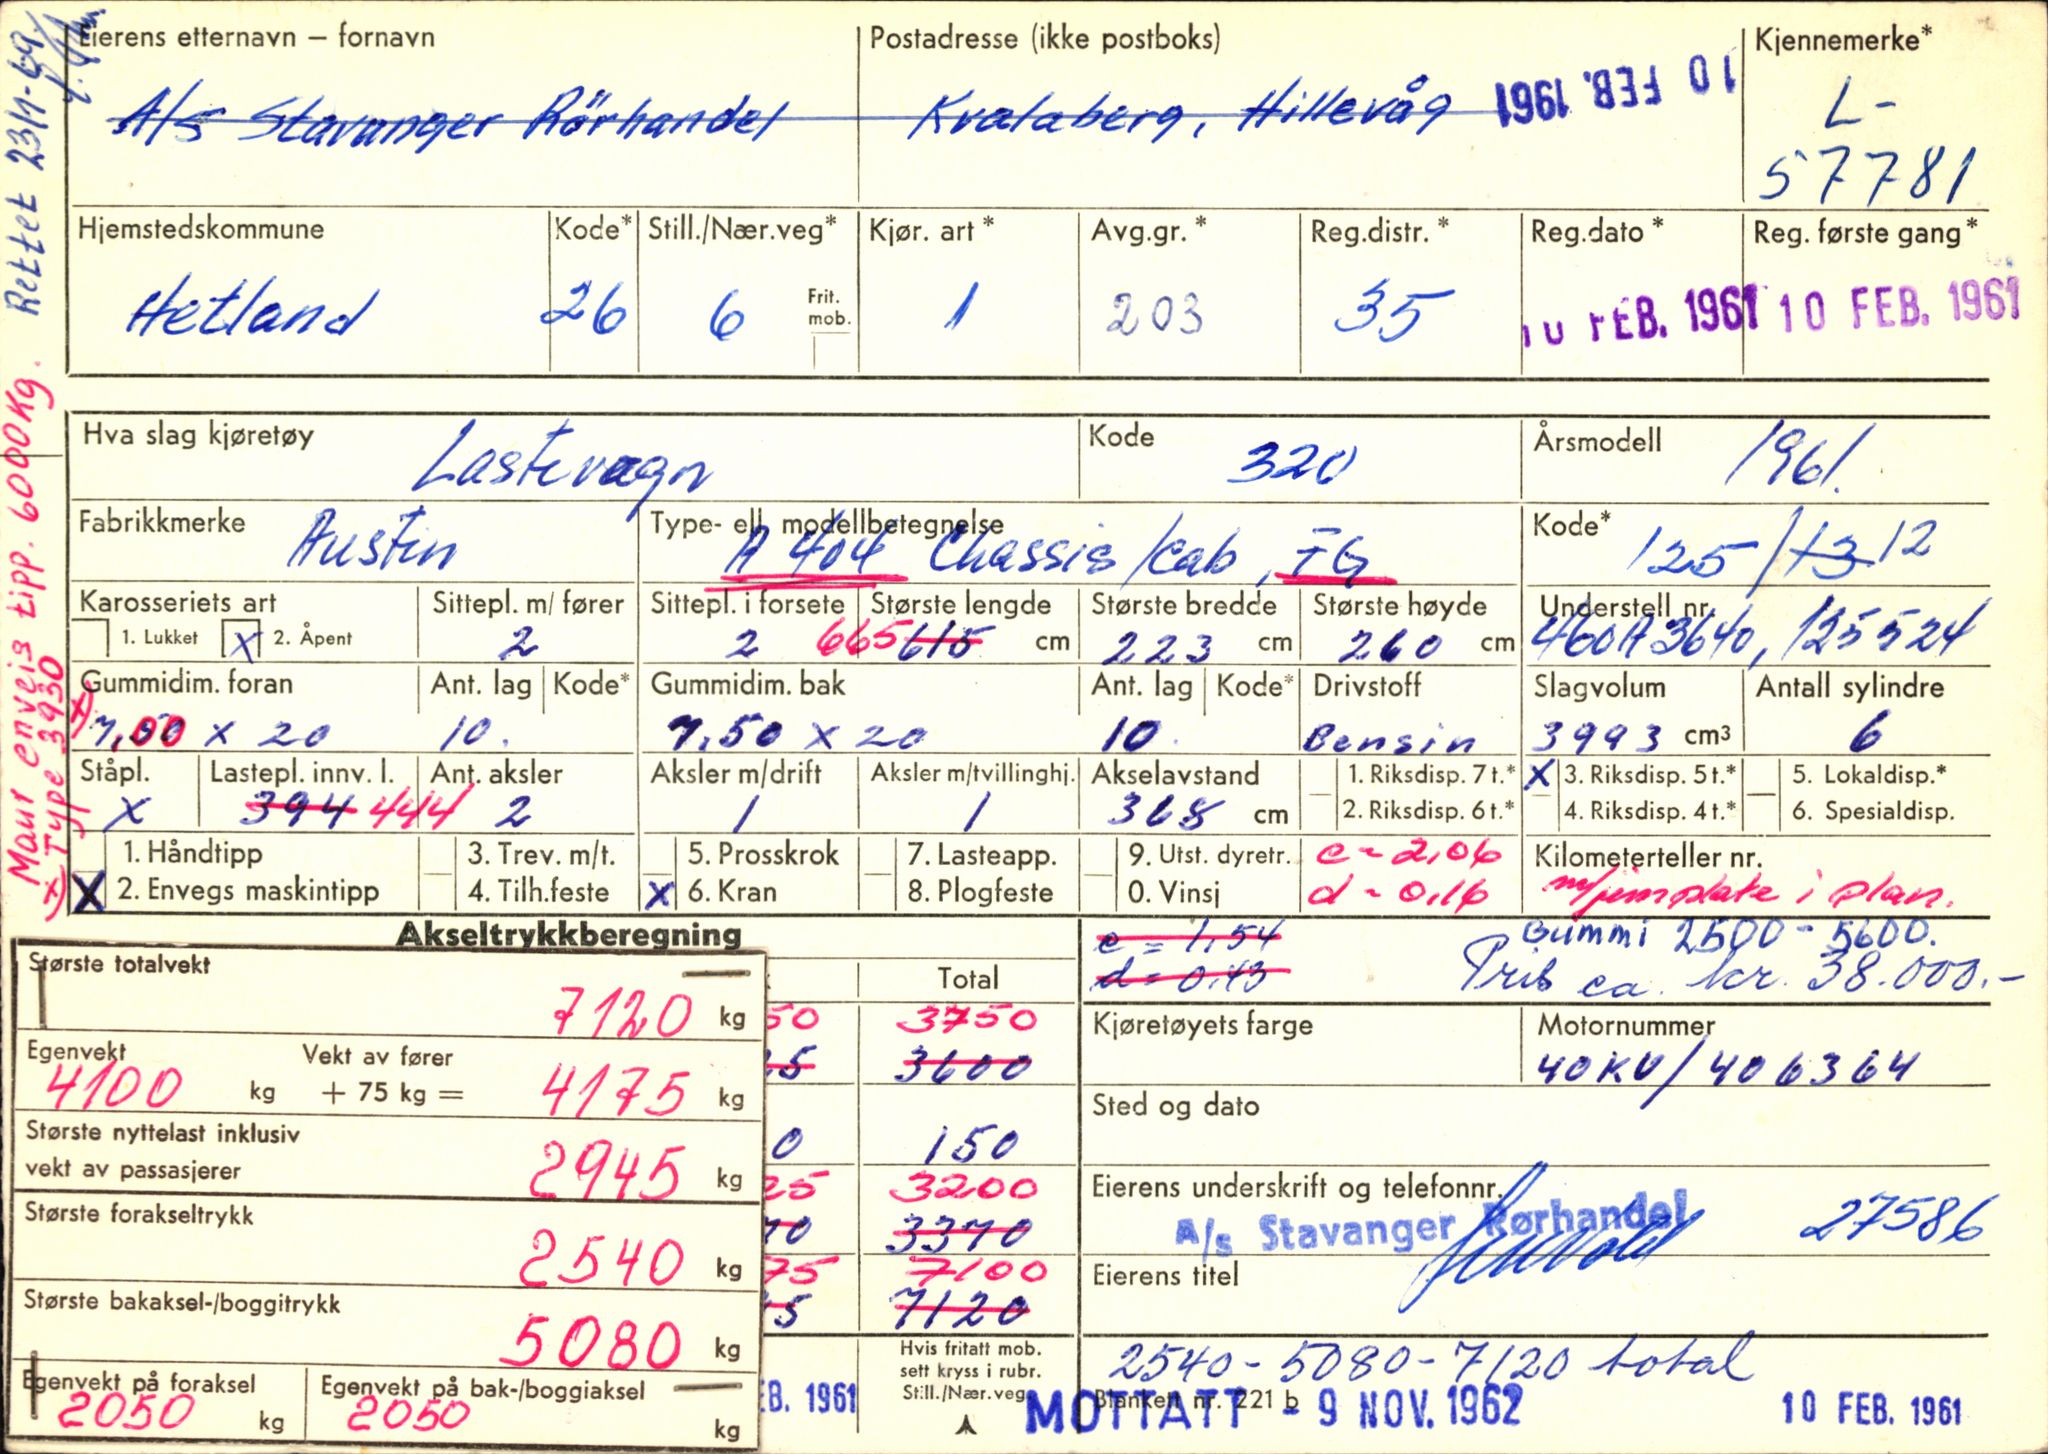 Eierens etternavn – fornavn
A/s Stavanger Rörhandel
Postadresse (ikke postboks)
Kvalaberg, Hillevåg
10 FEB. 1961
Kjennemerke*
L-
57781
Hjemstedskommune
Hetland
Kode*
26
Still./Nær.veg*
6
Frit.
mob.
Kjør. art *
1
Avg.gr. *
203
Reg.distr. *
35
Reg.dato *
10 FEB. 1961
Reg. første gang*
10 FEB. 1961
Rettet 23/1-69
Maur enveis tipp. 6000 Kg.
+) Type 3930
Hva slag kjøretøy
Lastevogn
Kode
320
Årsmodell
1961.
Fabrikkmerke
Austin
Type- ell. modellbetegnelse
A 404 Chassis/cab, FG
Kode*
125/13 12
Karosseriets art
1. Lukket
X 2. Åpent
Sittepl. m/ fører
2
Sittepl. i forsete
2
Største lengde
665 615 cm
Største bredde
223 cm
Største høyde
260 cm
Understell nr.
460A 3640, 125524
Gummidim. foran
+)
7,00 x 20
Ant. lag
10.
Kode*
Gummidim. bak
7,50 x 20
Ant. lag
10.
Kode*
Drivstoff
Bensin
Slagvolum
3993 cm3
Antall sylindre
6
Ståpl.
X
Lastepl. innv. l.
394 444
Ant. aksler
2
Aksler m/drift
1
Aksler m/tvillinghj.
1
Akselavstand
368 cm
1. Riksdisp. 7 t.*
2. Riksdisp. 6 t.*
X 3. Riksdisp. 5 t.*
4. Riksdisp. 4 t.*
5. Lokaldisp.*
6. Spesialdisp.
1. Håndtipp
X 2. Envegs maskintipp
3. Trev. m/t.
4. Tilh.feste
5. Prosskrok
X 6. Kran
7. Lasteapp.
8. Plogfeste
9. Utst. dyretr.
0. Vinsj
c = 2,06
d = 0,16
Kilometerteller nr.
m/jernplate i plan.
Akseltrykkberegning
c = 1,54
d = 0,43
Gummi 2500 - 5600.
Pris ca. kr. 38.000.-
Største totalvekt
7120 kg
Egenvekt
4100 kg
Vekt av fører
+ 75 kg =
4175 kg
Største nyttelast inklusiv
vekt av passasjerer
2945 kg
Største forakseltrykk
2540 kg
Største bakaksel-/boggitrykk
5080 kg
Egenvekt på foraksel
2050 kg
Egenvekt på bak-/boggiaksel
2050 kg
Total
50 3750
3600
0 150
25 3200
70 3370
75 7100
7120
Hvis fritatt mob.
sett kryss i rubr.
Still./Nær.veg
EB. 1961
Kjøretøyets farge
Motornummer
40KV/406364
Sted og dato
Eierens underskrift og telefonnr.
A/s Stavanger Rørhandel
27586
Eierens titel
2540 - 5080 - 7120 total
Blankett nr. 221 b
MOTTATT - 9 NOV. 1962
10 FEB. 1961